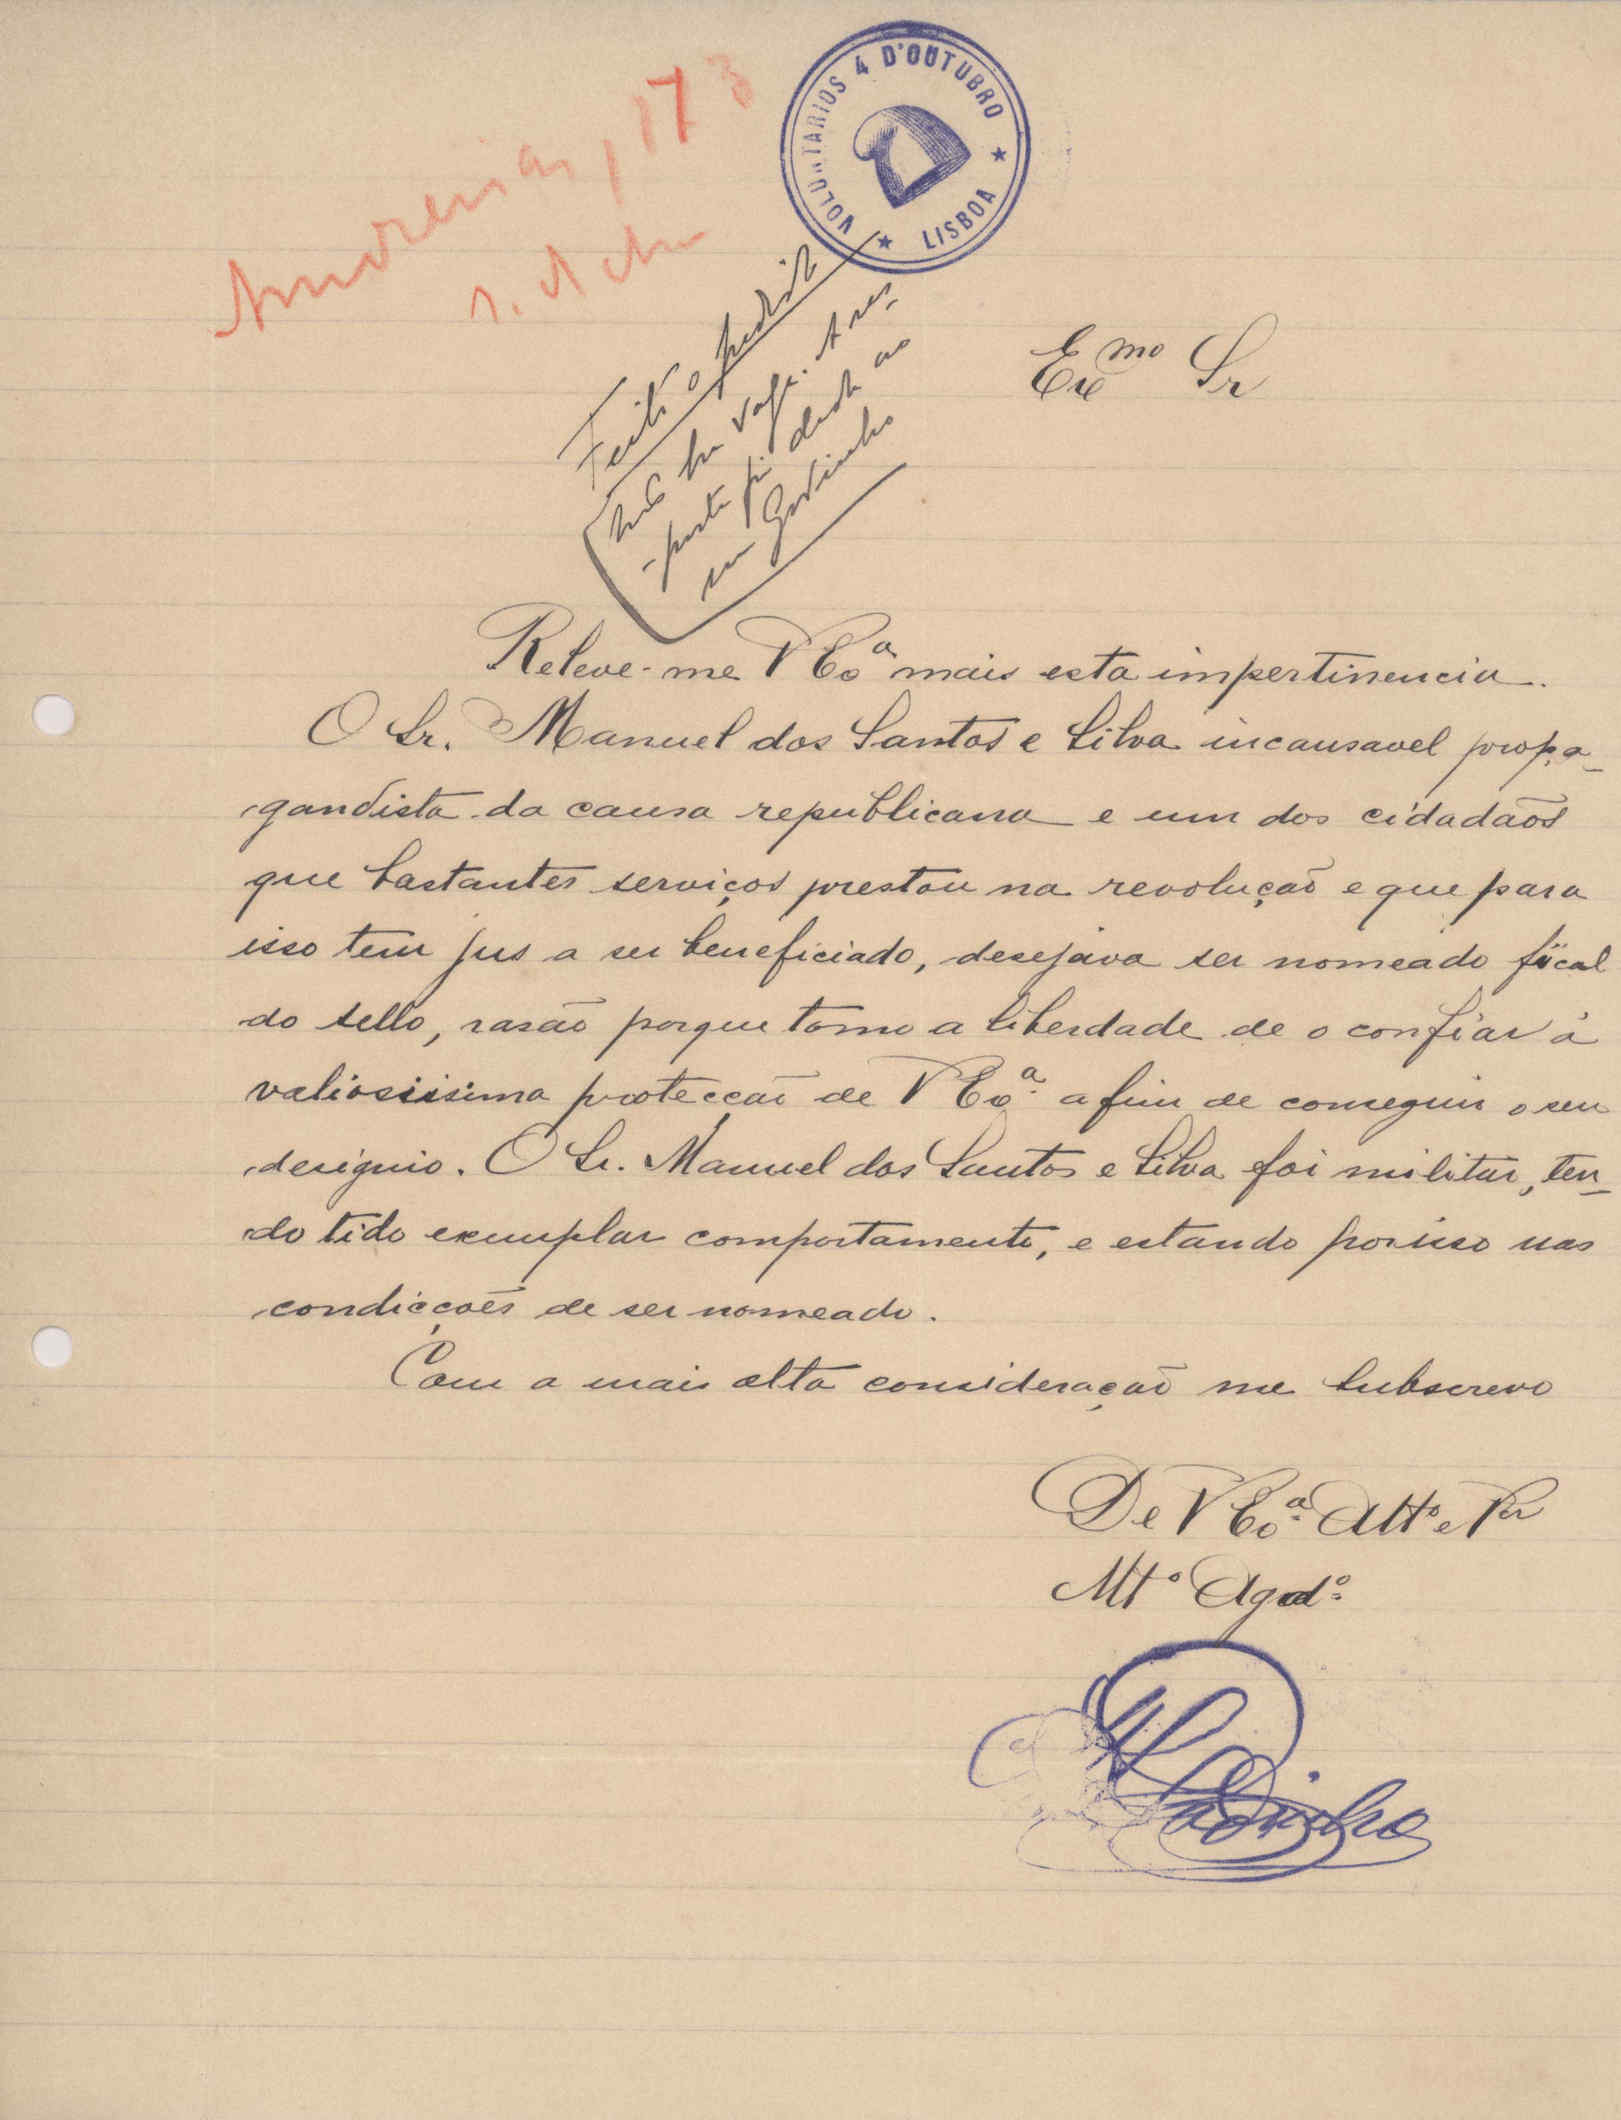 VOLUNTARIOS 4 D'OUTUBRO
LISBOA
173
Feito o pedido
não ha vaga. A res-
-posta foi dada ao
Sr Godinho
Exmo Sr
Releve-me V Exª mais esta impertinencia.
O Sr. Manuel dos Santos e Silva incansavel propa-
gandista da causa republicana e um dos cidadãos
que bastantes serviços prestou na revolução e que para
isso tem jus a ser beneficiado, desejava ser nomeado fiscal
do sello, rasão porque tomo a liberdade de o confiar á
valiosissima protecção de V Exª a fim de conseguir o seu
designio. O Sr. Manuel dos Santos e Silva foi militar, ten-
do tido exemplar comportamento, e estando por isso nas
condicções de ser nomeado.
Com a mais alta consideração me subscrevo
De V Exª Attº e Vor
Mtº Agrdº
Godinho